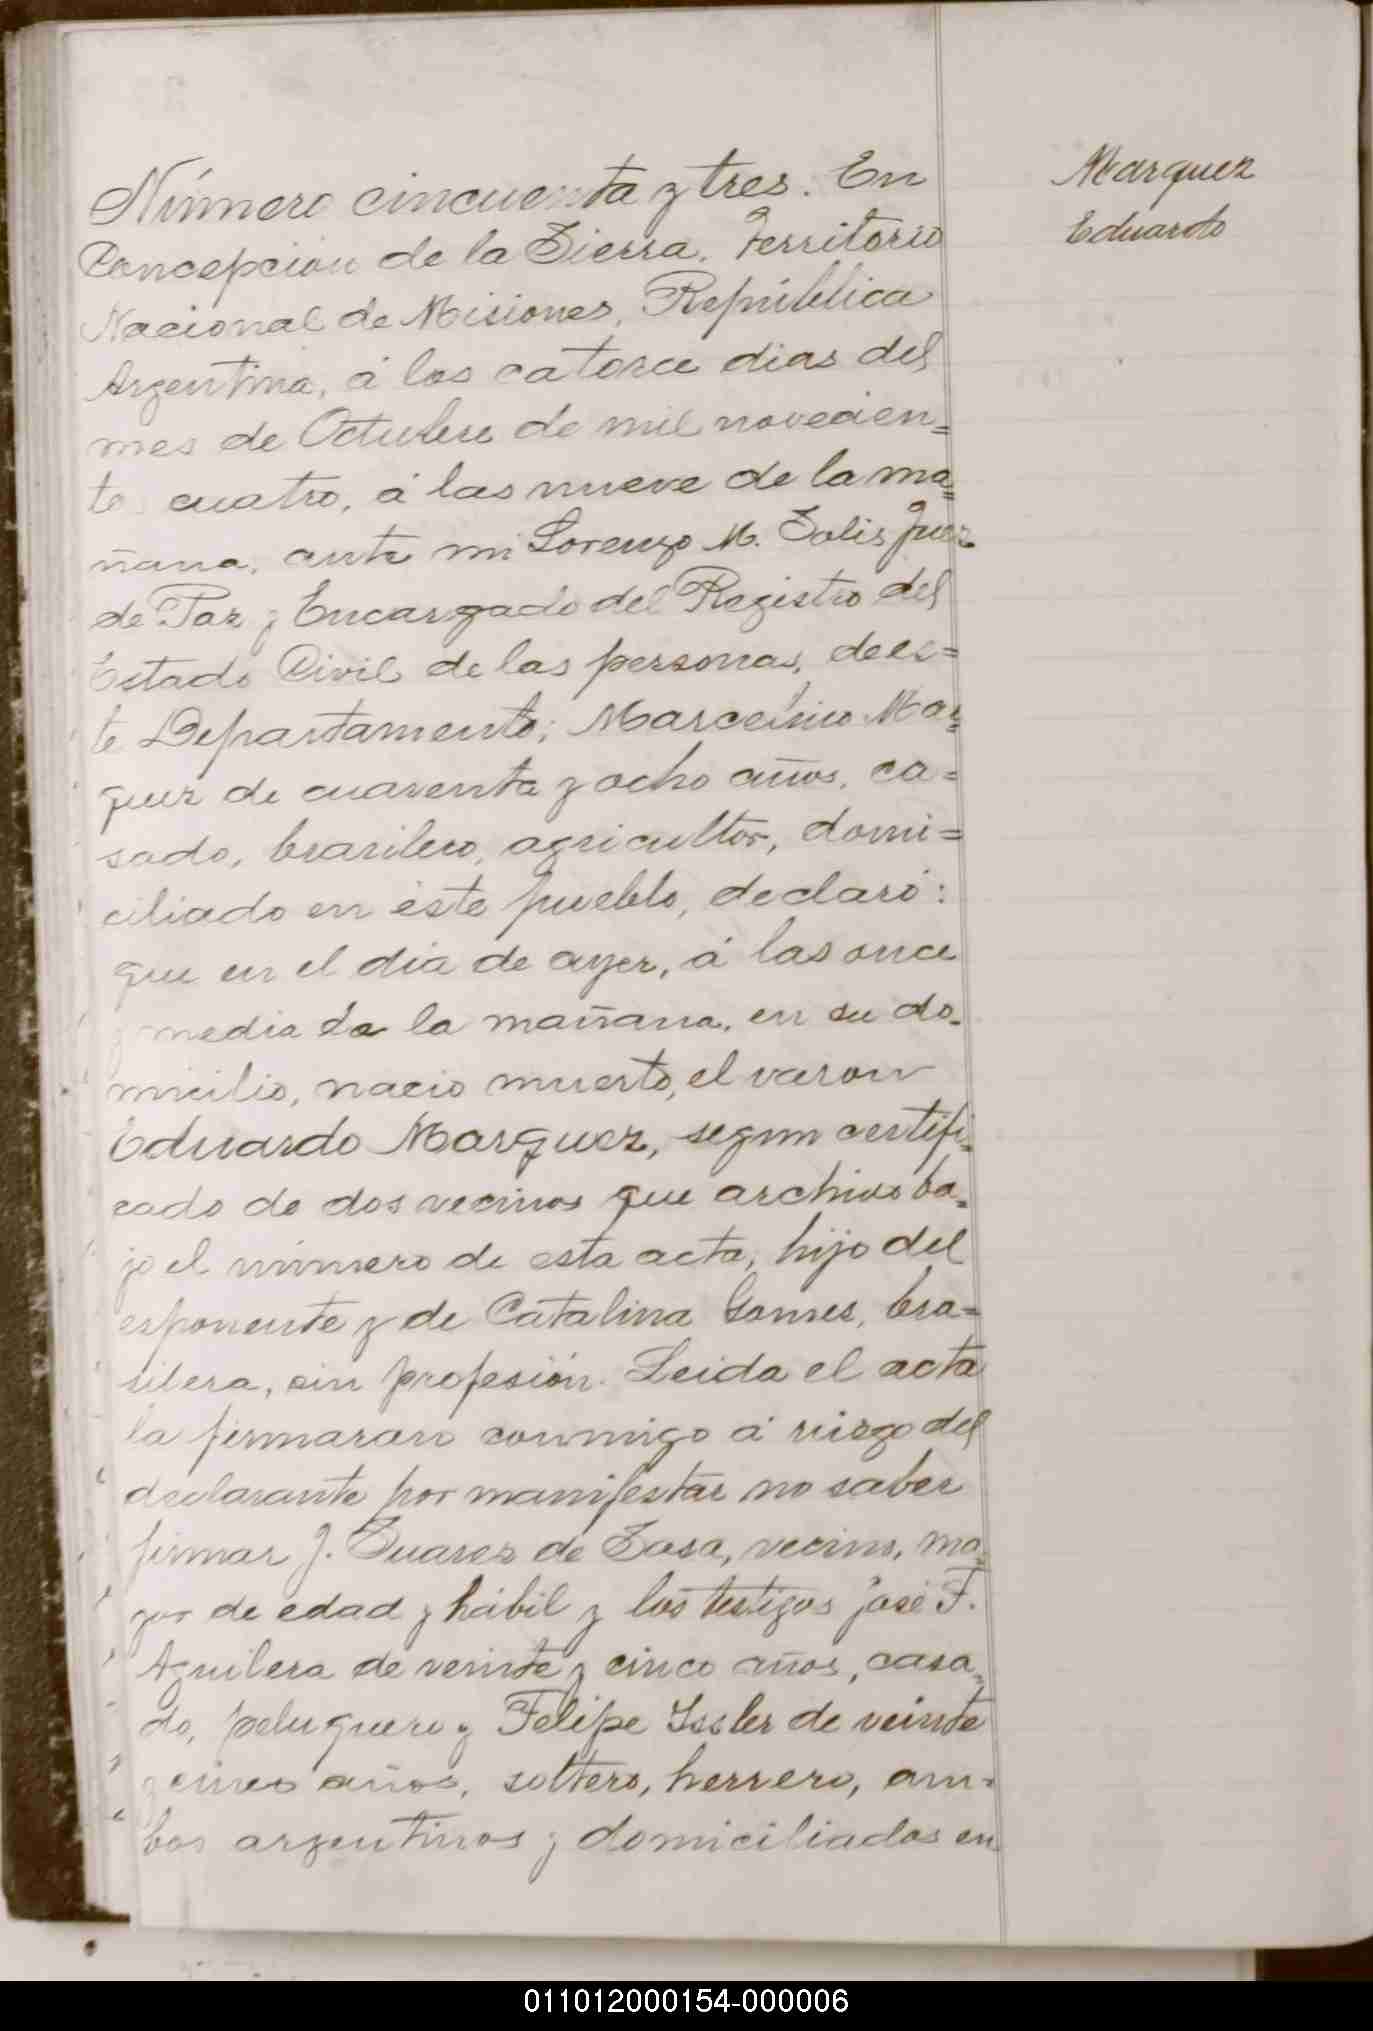 Número cincuenta y tres. En
Concepción de la Sierra, Territorio
Nacional de Misiones, República
Argentina, á los catorce dias del
mes de Octubre de mil novecien=
to cuatro, á las nueve de la ma=
ñana, ante mi Lorenzo M. Solis Juez
de Paz y Encargado del Registro del
Estado Civil de las personas, de es=
te Departamento; Marcelino Mar=
quez de cuarenta y ocho años, ca=
sado, brasilero, agricultor, domi=
ciliado en éste pueblo, declaró:
que en el dia de ayer, á las once
y media de la mañana, en su do=
micilio, nacio muerto, el varon
Eduardo Marquez, segun certifi=
cado de dos vecinos que archivo ba=
jo el número de esta acta, hijo del
esponente y de Catalina Gomes, bra=
silera, sin profesión. Leida el acta
la firmaron conmigo á ruego del
declarante por manifestar no saber
firmar J. Suarez de Sosa, vecino, ma=
yor de edad y hábil y los testigos José F.
Aguilera de veinte y cinco años, casa=
do, peluquero y Felipe Issler de veinte
y cinco años, soltero, herrero, am=
bos argentinos y domiciliados en
Marquez
Eduardo
011012000154-000006